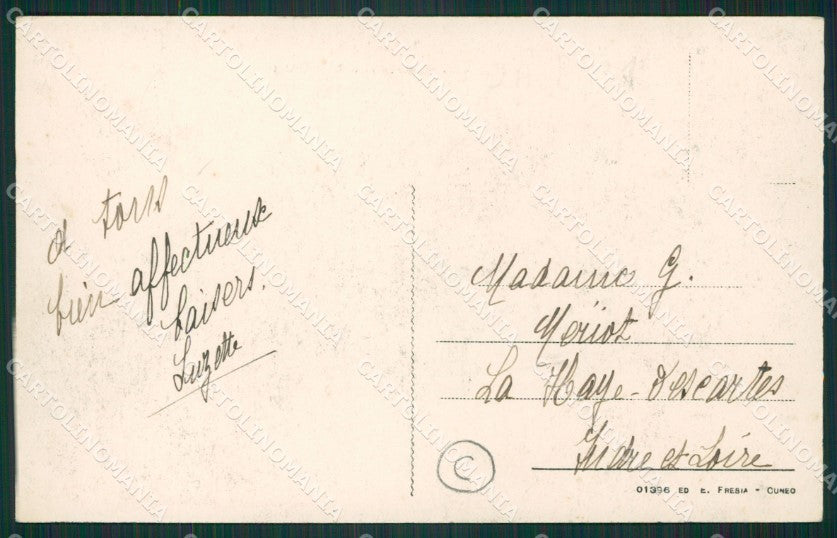 A tous
bien affectueux
baisers.
Suzette
Madame G.
Meriot
La Haye-Descartes
Indre et Loire
C
01396 ED E. FRESIA - CUNEO
CARTOLINOMANIA